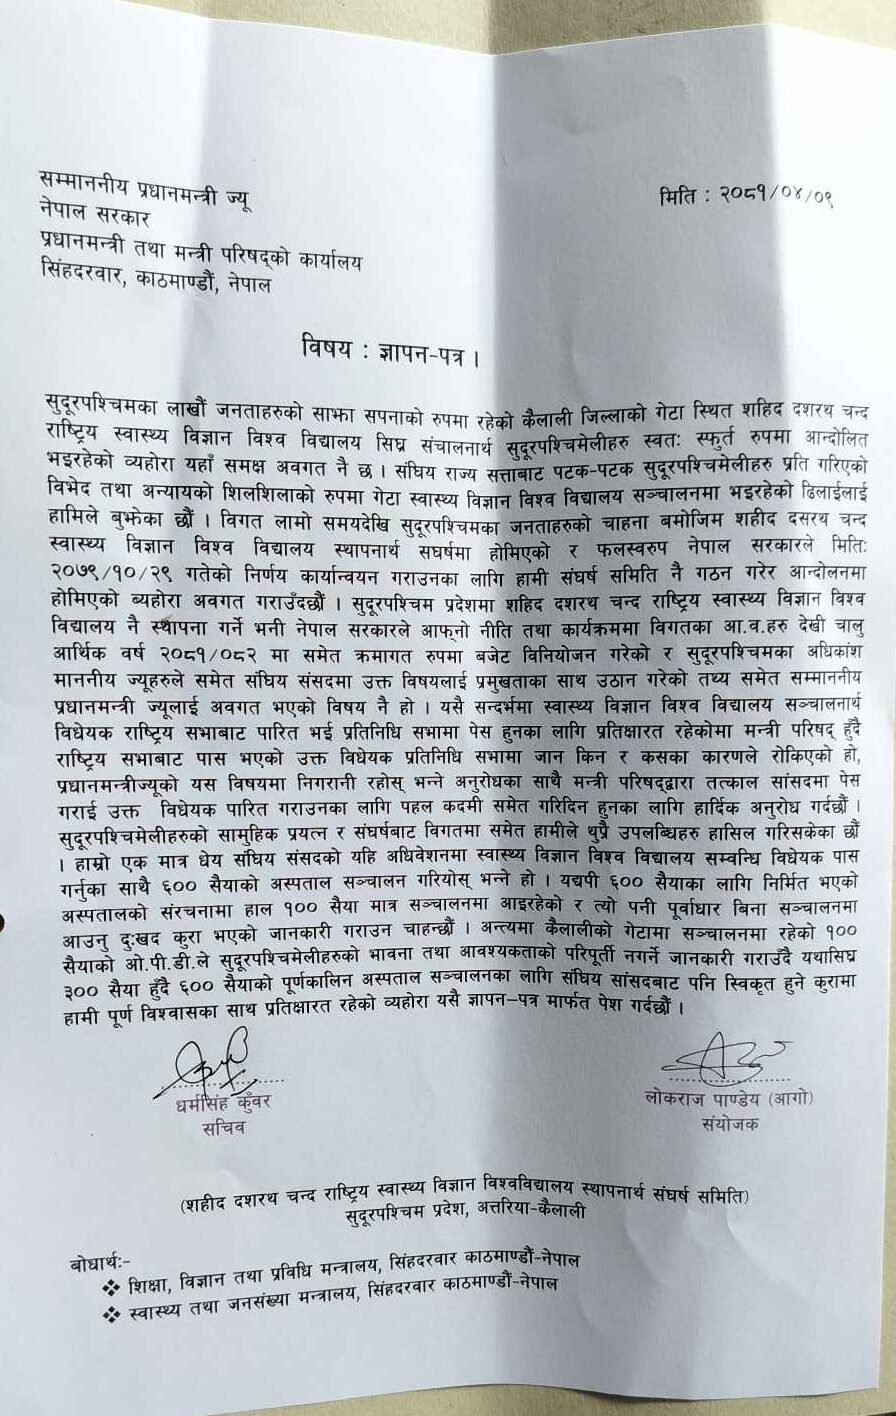 सम्माननीय प्रधानमन्त्री ज्यू
नेपाल सरकार
प्रधानमन्त्री तथा मन्त्री परिषद्को कार्यालय
सिंहदरवार, काठमाण्डौं, नेपाल
मिति : २०८१/०४/०९
विषय : ज्ञापन-पत्र ।
सुदूरपश्चिमका लाखौं जनताहरुको साझा सपनाको रुपमा रहेको कैलाली जिल्लाको गेटा स्थित शहिद दशरथ चन्द
राष्ट्रिय स्वास्थ्य विज्ञान विश्व विद्यालय सिघ्र संचालनार्थ सुदूरपश्चिमेलीहरु स्वतः स्फुर्त रुपमा आन्दोलित
भइरहेको व्यहोरा यहाँ समक्ष अवगत नै छ । संघिय राज्य सत्ताबाट पटक-पटक सुदूरपश्चिमेलीहरु प्रति गरिएको
विभेद तथा अन्यायको शिलशिलाको रुपमा गेटा स्वास्थ्य विज्ञान विश्व विद्यालय सञ्चालनमा भइरहेको ढिलाईलाई
हामिले बुझेका छौं । विगत लामो समयदेखि सुदूरपश्चिमका जनताहरुको चाहना बमोजिम शहीद दसरथ चन्द
स्वास्थ्य विज्ञान विश्व विद्यालय स्थापनार्थ सघर्षमा होमिएको र फलस्वरुप नेपाल सरकारले मितिः
२०७९/१०/२९ गतेको निर्णय कार्यान्वयन गराउनका लागि हामी संघर्ष समिति नै गठन गरेर आन्दोलनमा
होमिएको ब्यहोरा अवगत गराउँदछौं । सुदूरपश्चिम प्रदेशमा शहिद दशरथ चन्द राष्ट्रिय स्वास्थ्य विज्ञान विश्व
विद्यालय नै स्थापना गर्ने भनी नेपाल सरकारले आफ्नो नीति तथा कार्यक्रममा विगतका आ.व.हरु देखी चालु
आर्थिक वर्ष २०८१/०८२ मा समेत क्रमागत रुपमा बजेट विनियोजन गरेको र सुदूरपश्चिमका अधिकांश
माननीय ज्यूहरुले समेत संघिय संसदमा उक्त विषयलाई प्रमुखताका साथ उठान गरेको तथ्य समेत सम्माननीय
प्रधानमन्त्री ज्यूलाई अवगत भएको विषय नै हो । यसै सन्दर्भमा स्वास्थ्य विज्ञान विश्व विद्यालय सञ्चालनार्थ
विधेयक राष्ट्रिय सभाबाट पारित भई प्रतिनिधि सभामा पेस हुनका लागि प्रतिक्षारत रहेकोमा मन्त्री परिषद् हुँदै
राष्ट्रिय सभाबाट पास भएको उक्त विधेयक प्रतिनिधि सभामा जान किन र कसका कारणले रोकिएको हो,
प्रधानमन्त्रीज्यूको यस विषयमा निगरानी रहोस् भन्ने अनुरोधका साथै मन्त्री परिषद्द्वारा तत्काल सांसदमा पेस
गराई उक्त विधेयक पारित गराउनका लागि पहल कदमी समेत गरिदिन हुनका लागि हार्दिक अनुरोध गर्दछौं ।
सुदूरपश्चिमेलीहरुको सामुहिक प्रयत्न र संघर्षबाट विगतमा समेत हामीले थुप्रै उपलब्धिहरु हासिल गरिसकेका छौं
। हाम्रो एक मात्र धेय संघिय संसदको यहि अधिवेशनमा स्वास्थ्य विज्ञान विश्व विद्यालय सम्वन्धि विधेयक पास
गर्नुका साथै ६०० सैयाको अस्पताल सञ्चालन गरियोस् भन्ने हो । यद्यपी ६०० सैयाका लागि निर्मित भएको
अस्पतालको संरचनामा हाल १०० सैया मात्र सञ्चालनमा आइरहेको र त्यो पनी पूर्वाधार बिना सञ्चालनमा
आउनु दुःखद कुरा भएको जानकारी गराउन चाहन्छौं । अन्त्यमा कैलालीको गेटामा सञ्चालनमा रहेको १००
सैयाको ओ.पी.डी.ले सुदूरपश्चिमेलीहरुको भावना तथा आवश्यकताको परिपूर्ती नगर्ने जानकारी गराउँदै यथासिघ्र
३०० सैया हुँदै ६०० सैयाको पूर्णकालिन अस्पताल सञ्चालनका लागि संघिय सांसदबाट पनि स्विकृत हुने कुरामा
हामी पूर्ण विश्वासका साथ प्रतिक्षारत रहेको व्यहोरा यसै ज्ञापन–पत्र मार्फत पेश गर्दछौं ।
धर्मसिंह कुँवर
सचिव
लोकराज पाण्डेय (आगो)
संयोजक
(शहीद दशरथ चन्द राष्ट्रिय स्वास्थ्य विज्ञान विश्वविद्यालय स्थापनार्थ संघर्ष समिति)
सुदूरपश्चिम प्रदेश, अत्तरिया-कैलाली
बोधार्थः-
❖ शिक्षा, विज्ञान तथा प्रविधि मन्त्रालय, सिंहदरवार काठमाण्डौं-नेपाल
❖ स्वास्थ्य तथा जनसंख्या मन्त्रालय, सिंहदरवार काठमाण्डौं-नेपाल